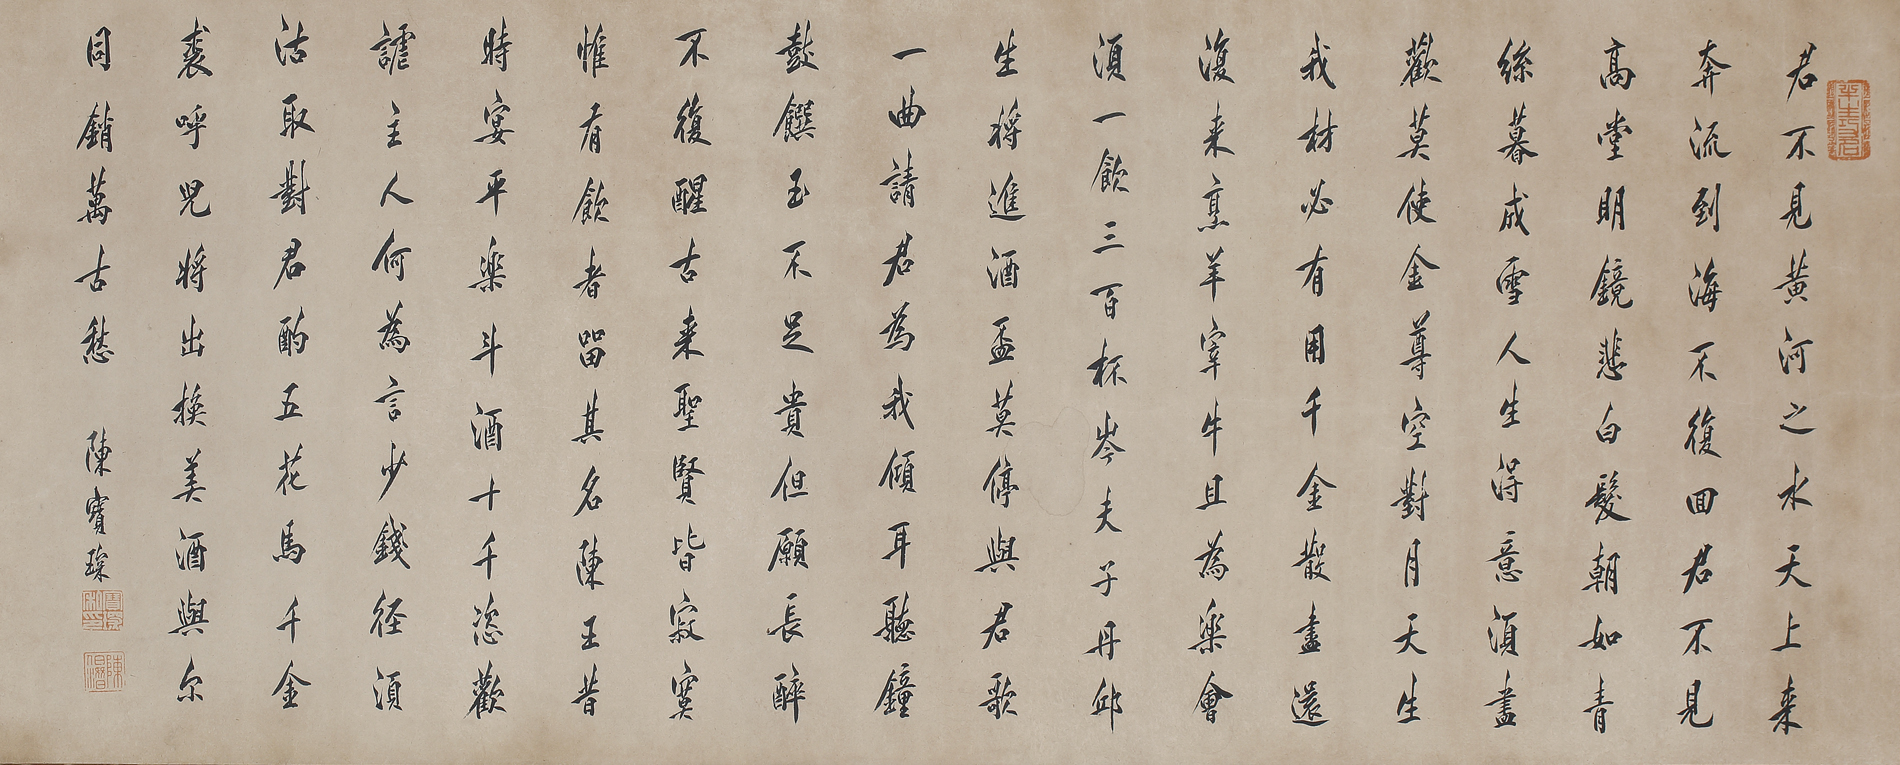 君不見黃河之水天上来
奔流到海不復回君不見
高堂明鏡悲白髮朝如青
絲暮成雪人生得意須盡
歡莫使金尊空對月天生
我材必有用千金散盡還
復来烹羊宰牛且為楽會
須一飲三百杯岑夫子丹邱
生將進酒盃莫停與君歌
一曲請君為我傾耳聽鐘
鼓饌玉不足貴但願長醉
不復醒古来聖賢皆寂寞
惟有飲者留其名陳王昔
時宴平楽斗酒十千恣歡
謔主人何為言少錢径須
沽取對君酌五花馬千金
裘呼兒將出換美酒與尔
同銷萬古愁 陳寶琛
寶琛私印
陳伯潛